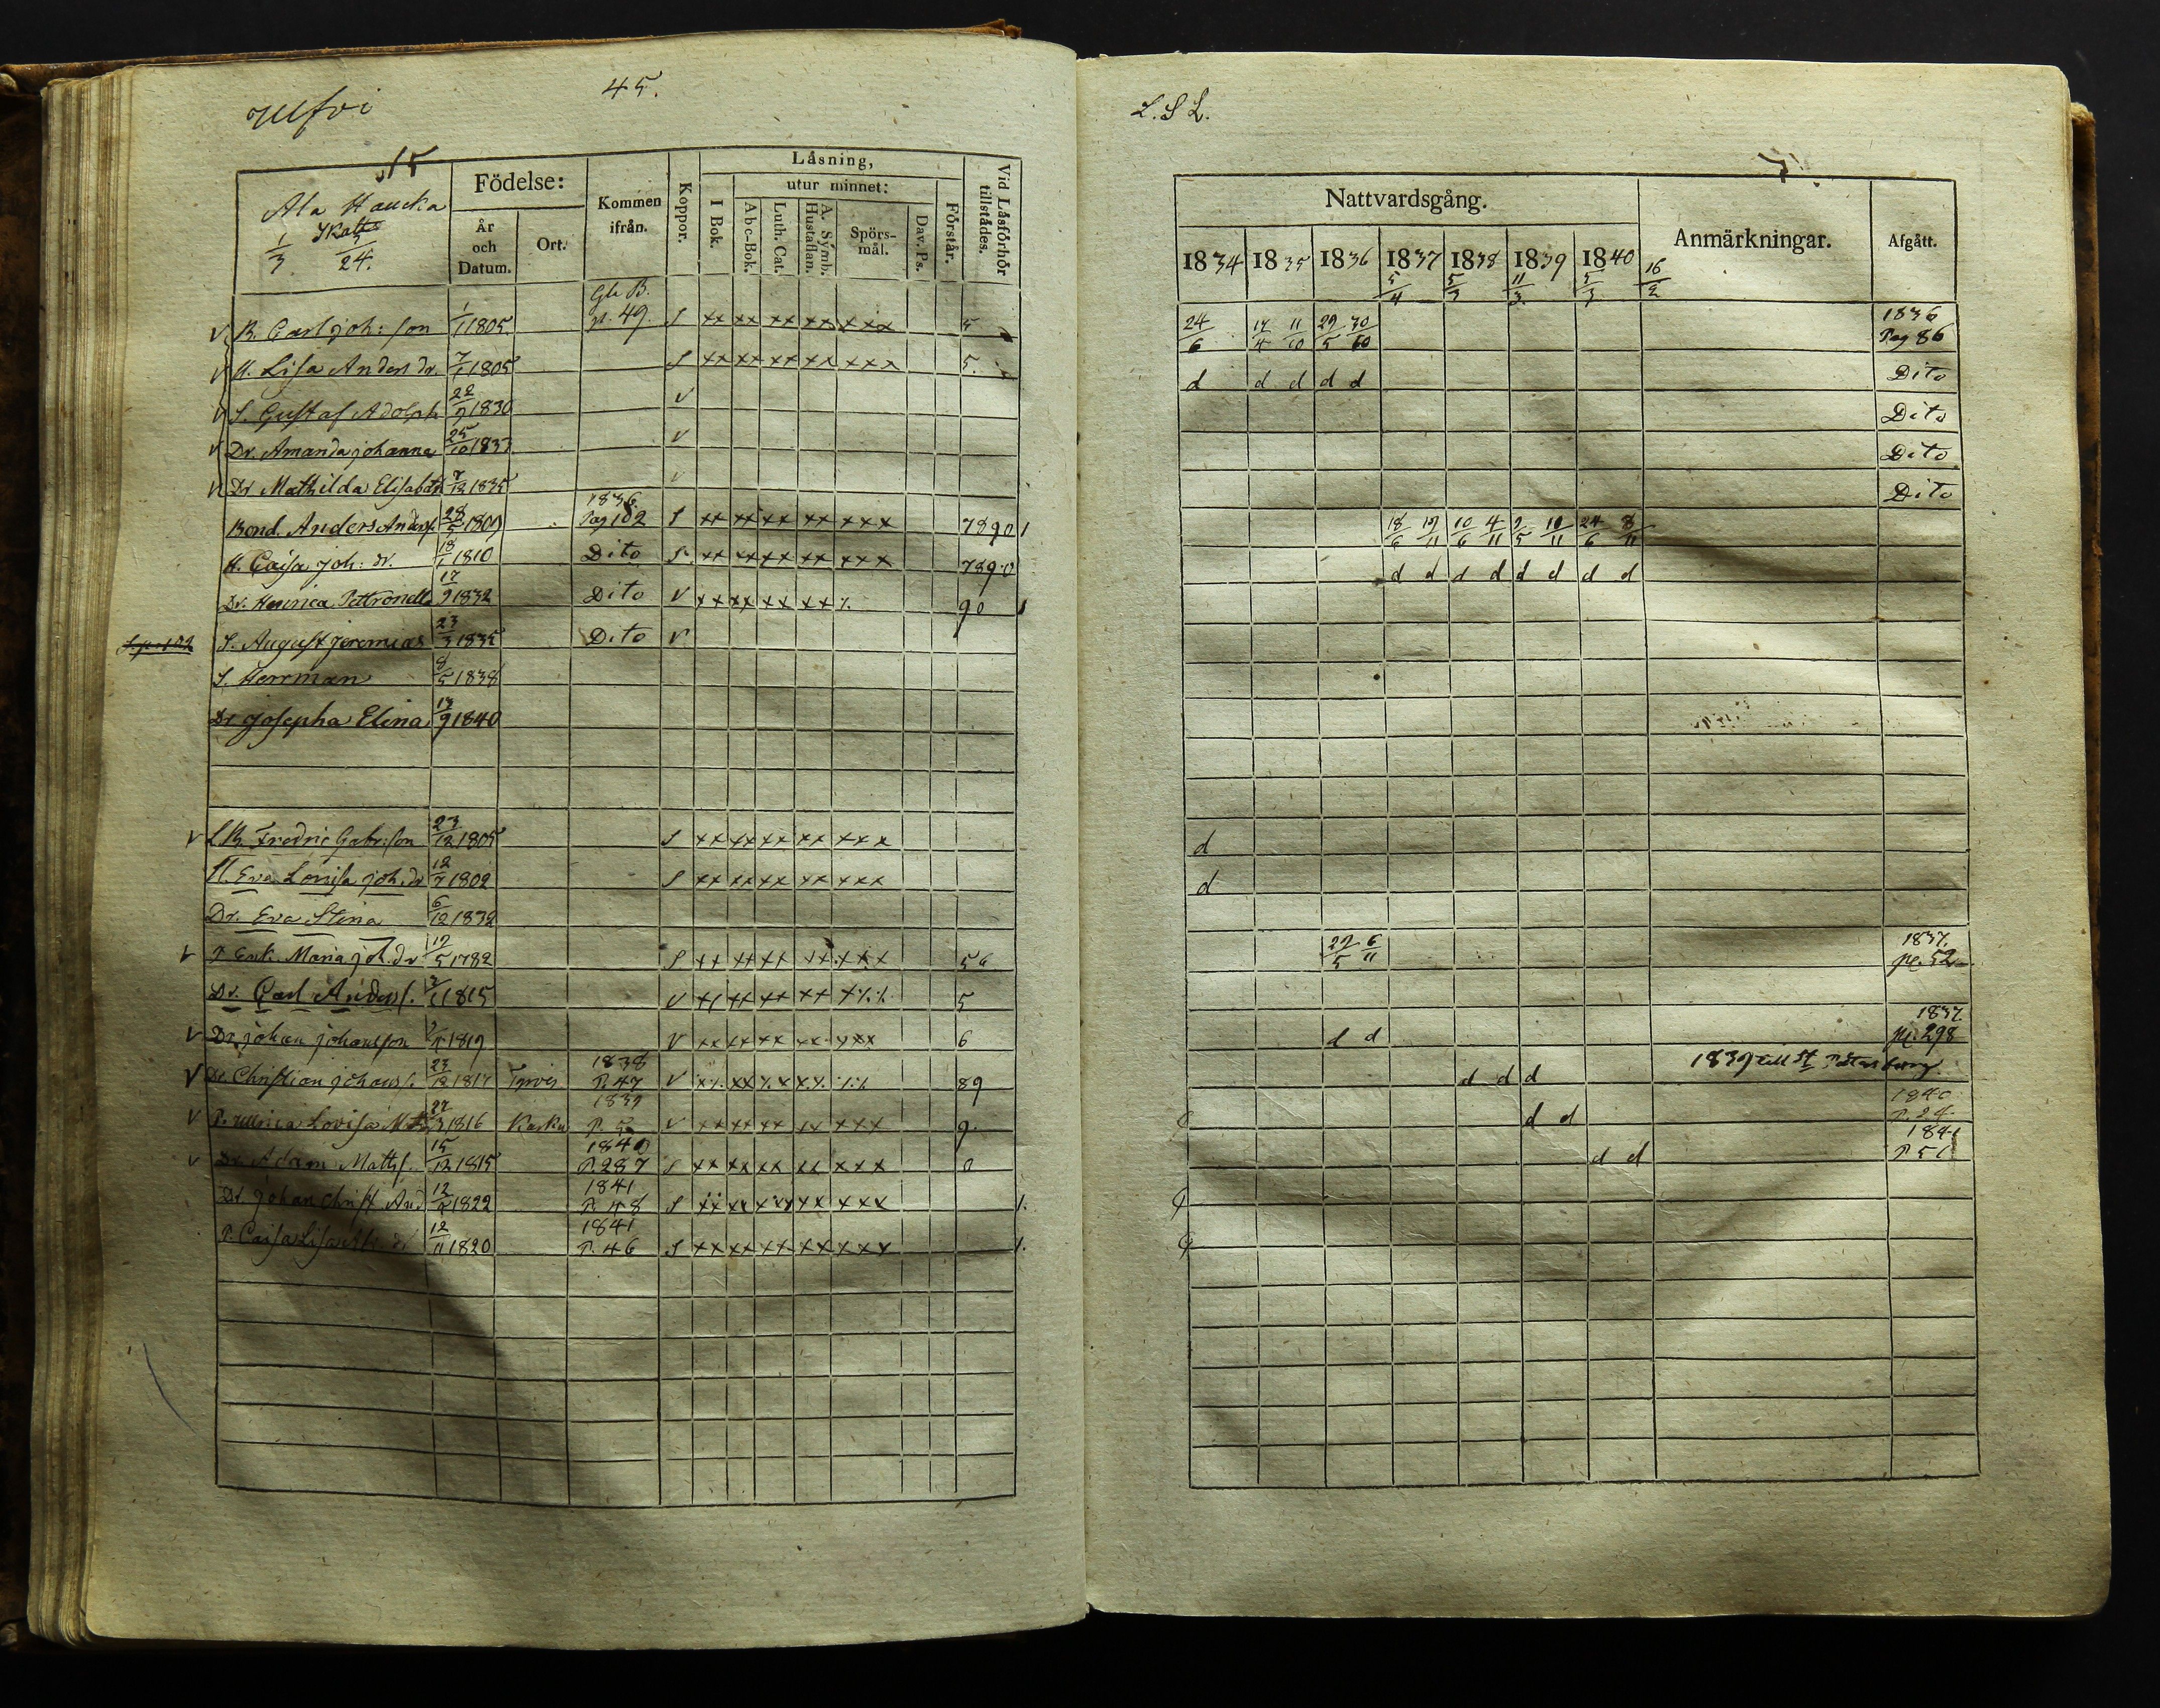 45.
15
Ala Haucka
Skatte
1/3 5/24.
Födelse:
År och Datum.
Ort.
Kommen ifrån.
Koppor.
Låsning,
I Bok.
utur minnet:
Abc-Bok.
Luth. Cat.
A. Symb. Hustaflan.
Spörs-mål.
Dav. Ps.
Förstår.
Vid Låsförhör tillstådes.
B. Carl joh: son 1/1 1805 Gla B. p. 49. S xx xx xx xx xxx 5
H. Lisa Anders dr. 7/1 1805 S xx xx xx xx xxx 5.
S. Gustaf Adolph 22/9 1830 v
Dr. Amanda johanna 25/10 1833 v
Dr Mathilda Elisabeth 7/12 1835 v
Bond. Anders Anders. 28/5 1809 1836 Pag 102 S xx xx xx xx xxx 7890 1
H. Caisa joh: dr. 18/1 1810 Dito S. xx xx xx xx xxx 7890
Dr. Henrica Pettronella 17/9 1832 Dito v xx xx xx xx 90 1
S. August jeremias 23/3 1835 Dito v
S. Herrman 8/5 1838
Dr josepha Elina 13/9 1840
L B. Fredric Gabr: son 23/12 1805 S xx xx xx xx xxx
H. Eva Lovisa joh. dr 12/7 1802 S xx xx xx xx xxx
Dr. Eva Stina 6/12 1832
P Enk. Maria joh. dr 12/5 1782 S xx xx xx xx xxx 56
Dr. Carl Anders. 1815 v 5
Dr. johan johansson 1819 v xx xx xx xx xxx 6
Dr. Christian johans. 23/12 1817 Tyrvis 1838 P. 47 v 89
P. Ullrica Lovisa 22/3 1816 1839 v xx xx xx xx xxx 9.
Dr. Adam Matts. 15/12 1815 1840 P. 287 S xx xx xx xx xxx 0
Dr. johan Christ And 12/ 1822 1841 P. 48 S xx xx xx xx xxx 1.
P. Caisa Lisa dr 12/11 1820 1841 P. 46 S xx xx xx xx xxx 1.
L. S L.
Nattvardsgång.
1834 1835 1836 1837 1838 1839 1840
5/4 5/3 11/3. 5/3 16/2
Anmärkningar.
Afgått.
24/6 11/10 29/5 30/10 1836 Pag 86
d d d d d Dito
Dito
Dito
Dito
18/6 19/11 10/6 4/11 9/5 10/11 24/6 8/11
d d d d d d d d
d
d
29/5 6/11 1837. pg. 52
d d 1837. pg. 298
d d d 1839 till St Pettersburg
d d 1840 P. 24
d d 1841 P 51